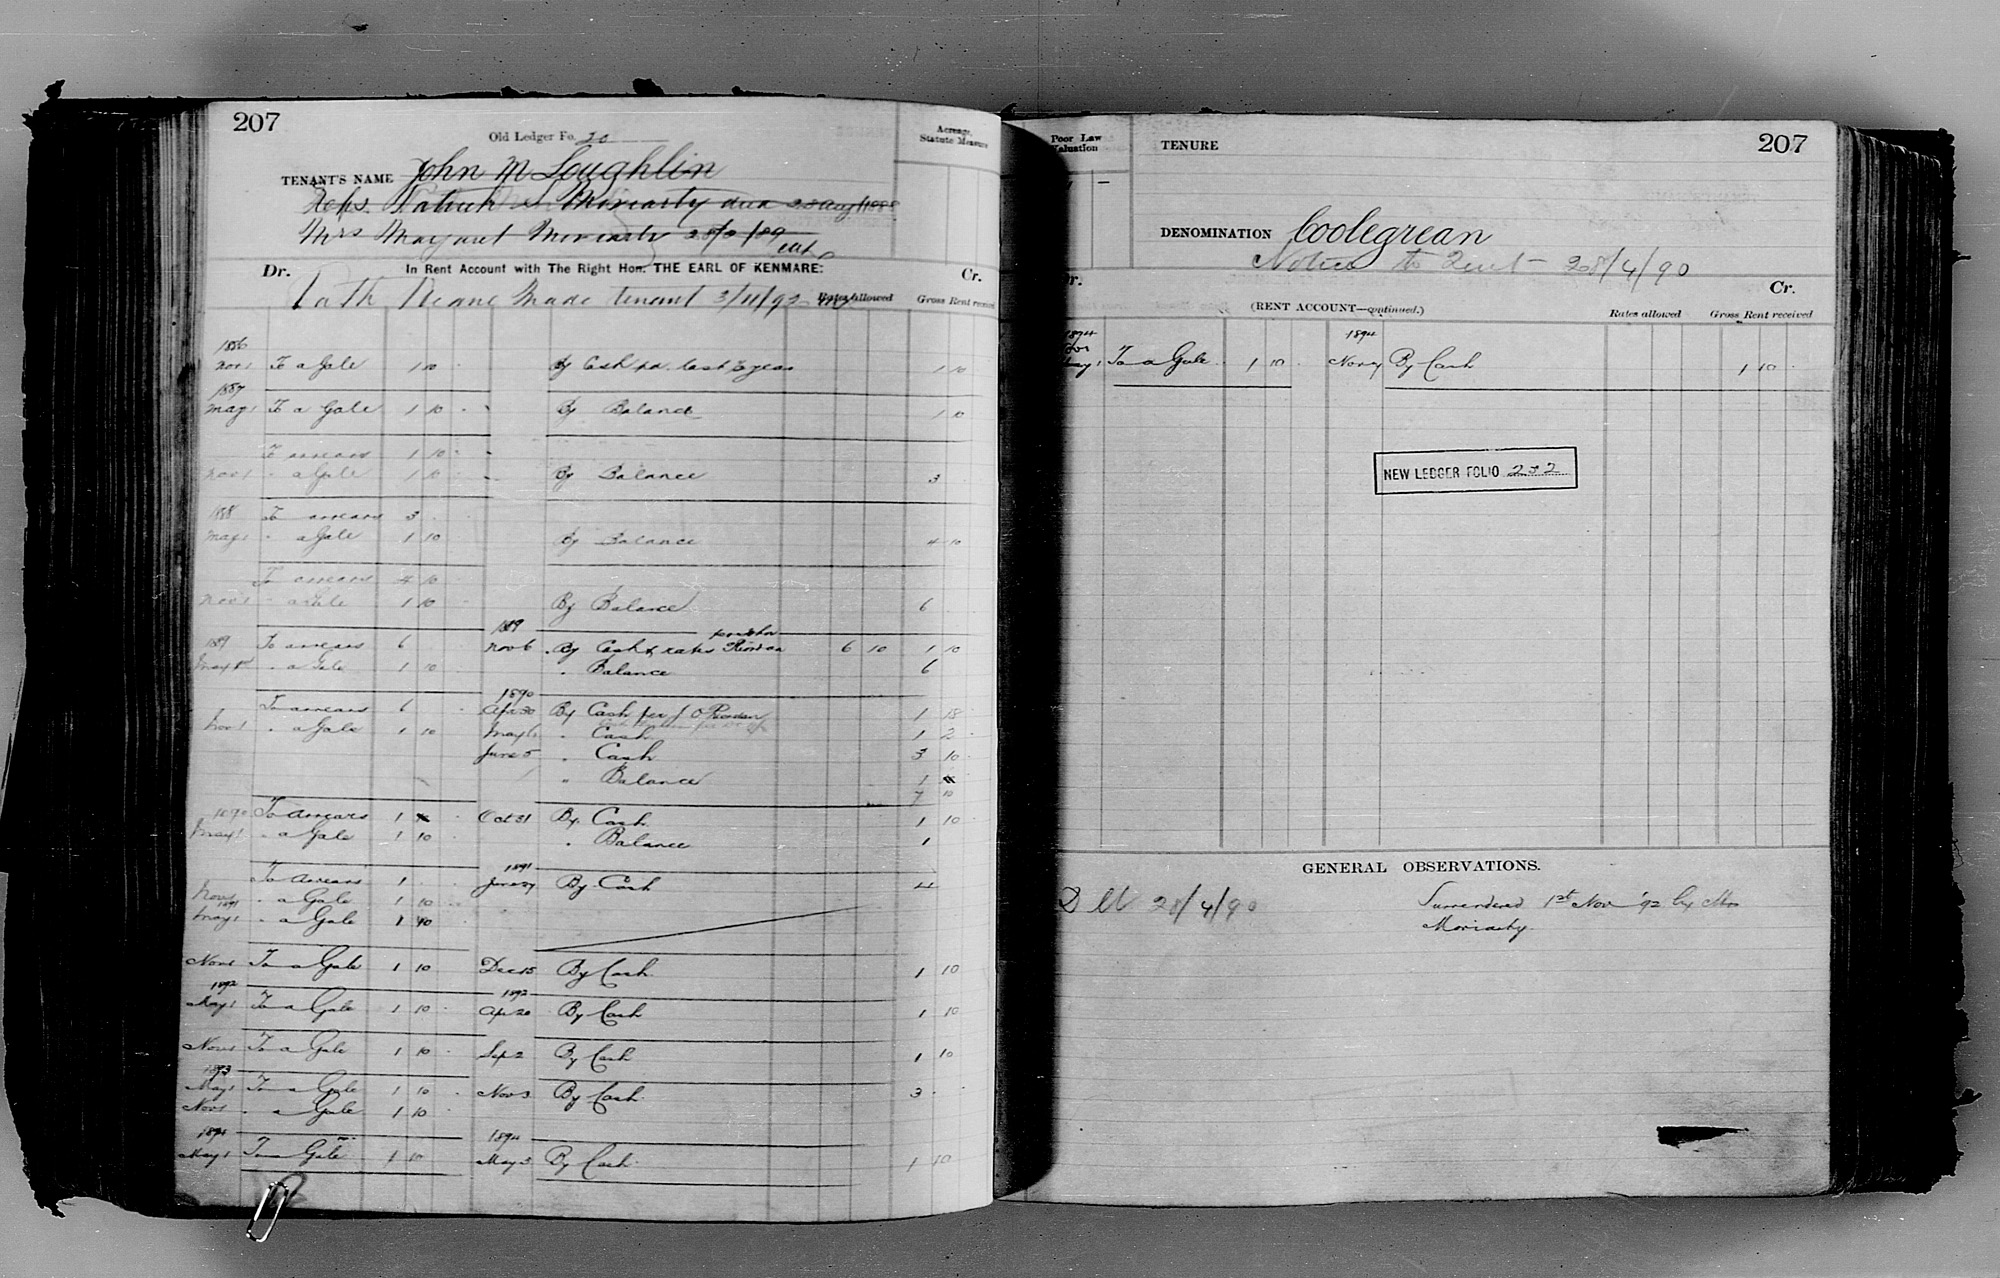 207
Old Ledger Fo. 20
Acreage, Statute Measure
TENANT'S NAME John McLoughlin
Reps. Patrick Moriarty
Mrs Margaret Moriarty
Dr. In Rent Account with The Right Hon. THE EARL OF KENMARE: Cr.
made tenant 3/11/92 Rates allowed Gross Rent received
1886
Nov 1 To a Gale 1 10 By Cash 1 10
1887
May 1 To a Gale 1 10 - By Balance 1 10
To arrears 1 10 -
Nov 1 " a Gale 1 10 - By Balance 3
1888 To arrears 3
May 1 " a Gale 1 10 By Balance 4 10
To arrears 4 10
Nov 1 " a Gale 1 10 By Balance 6
1889
1889 To arrears 6 Nov 6 By Cash & rates 6 10 1 10
May 1 " a Gale 1 10 " Balance 6
1890
To arrears 6 Apr 30 By Cash per J O Riordan 1 18
Nov 1 " a Gale 1 10 May 6 " Cash 1 2
June 5 " Cash 3 10
" Balance 1
7 10
1890 To Arrears 1 Oct 31 By Cash 1 10
May 1 " a Gale 1 10 " Balance 1
1891
To Arrears 1 June By Cash 4
Nov 1 " a Gale 1 10
1891
May 1 " a Gale 1 10
Nov 1 To a Gale 1 10 Dec 15 By Cash 1 10
1892 1892
May 1 To a Gale 1 10 Apr 20 By Cash 1 10
Nov 1 To a Gale 1 10 Sep 2 By Cash 1 10
1893
May 1 To a Gale 1 10 Nov 3 By Cash 3
Nov 1 " a Gale 1 10
1894 1894
May 1 To a Gale 1 10 May 3 By Cash 1 10
Poor Law Valuation
TENURE
207
DENOMINATION Coolegrean
Notice to Quit - 28/4/90
Cr.
(RENT ACCOUNT—continued.) Rates allowed Gross Rent received
1894 1894
To a Gale 1 10 Nov By Cash 1 10
NEW LEDGER FOLIO 232
GENERAL OBSERVATIONS.
28/4/90
Surrendered 1st Nov '92 by Mrs
Moriarty